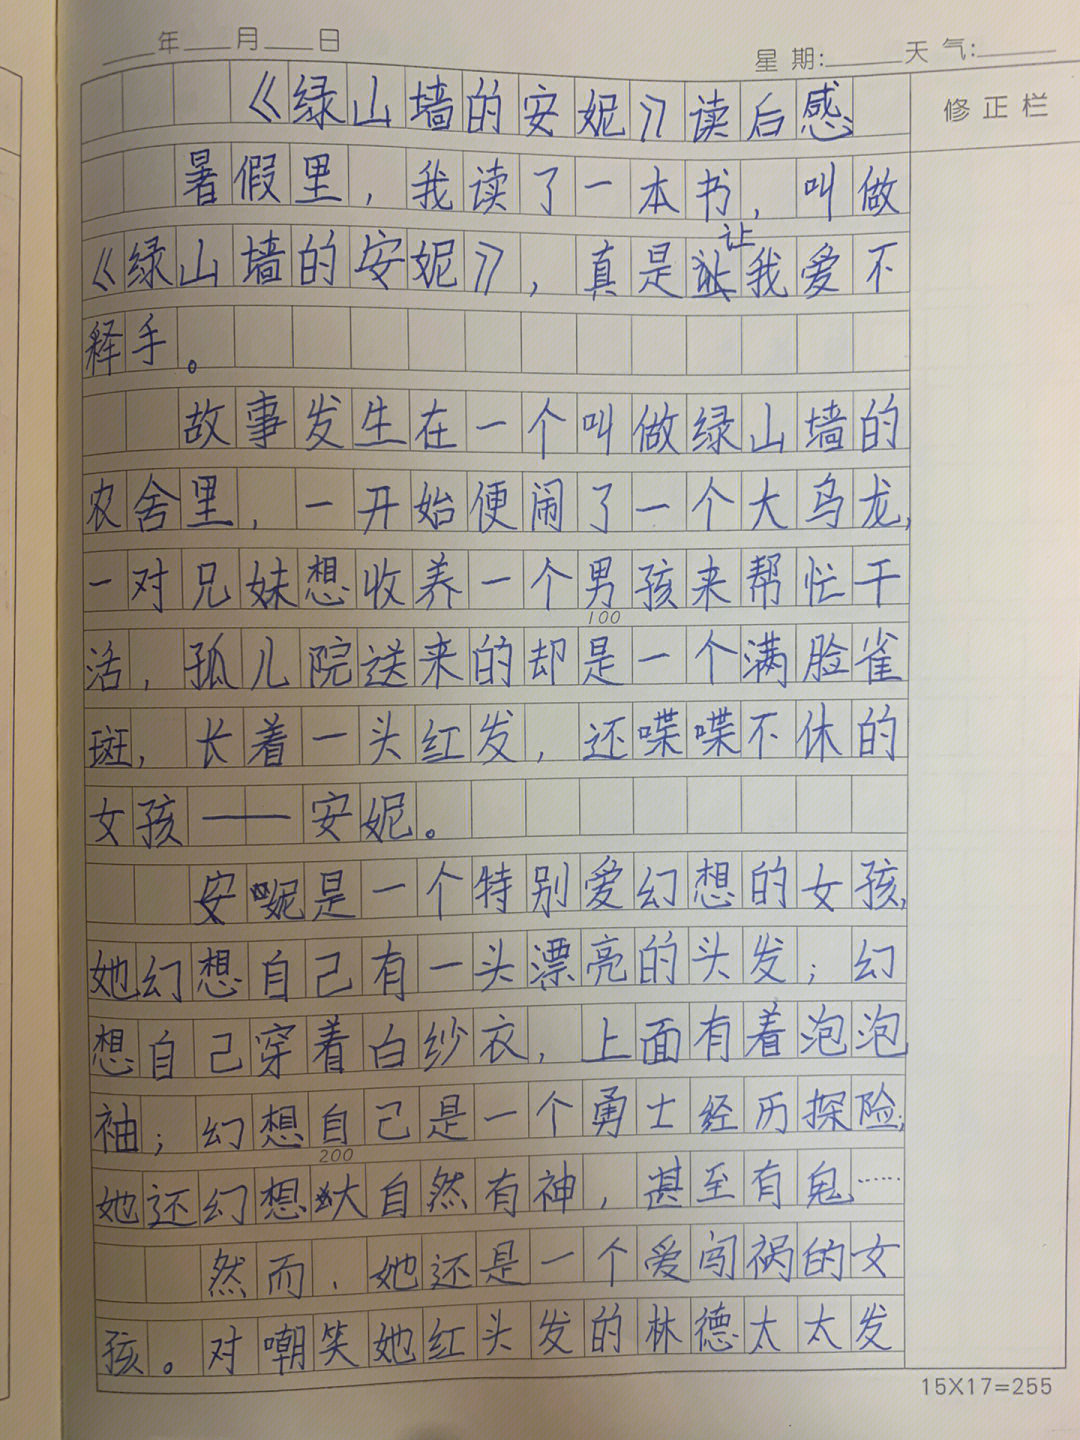 ____年____月____日
星期:______天气:______
修正栏
《绿山墙的安妮》读后感
暑假里，我读了一本书，叫做
让
《绿山墙的安妮》，真是我爱不
释手。
故事发生在一个叫做绿山墙的
农舍里，一开始便闹了一个大乌龙，
一对兄妹想收养一个男孩来帮忙干
100
活，孤儿院送来的却是一个满脸雀
斑，长着一头红发，还喋喋不休的
女孩——安妮。
安妮是一个特别爱幻想的女孩，
她幻想自己有一头漂亮的头发；幻
想自己穿着白纱衣，上面有着泡泡
袖；幻想自己是一个勇士经历探险；
200
她还幻想大自然有神，甚至有鬼……
然而，她还是一个爱闯祸的女
孩。对嘲笑她红头发的林德太太发
15X17=255